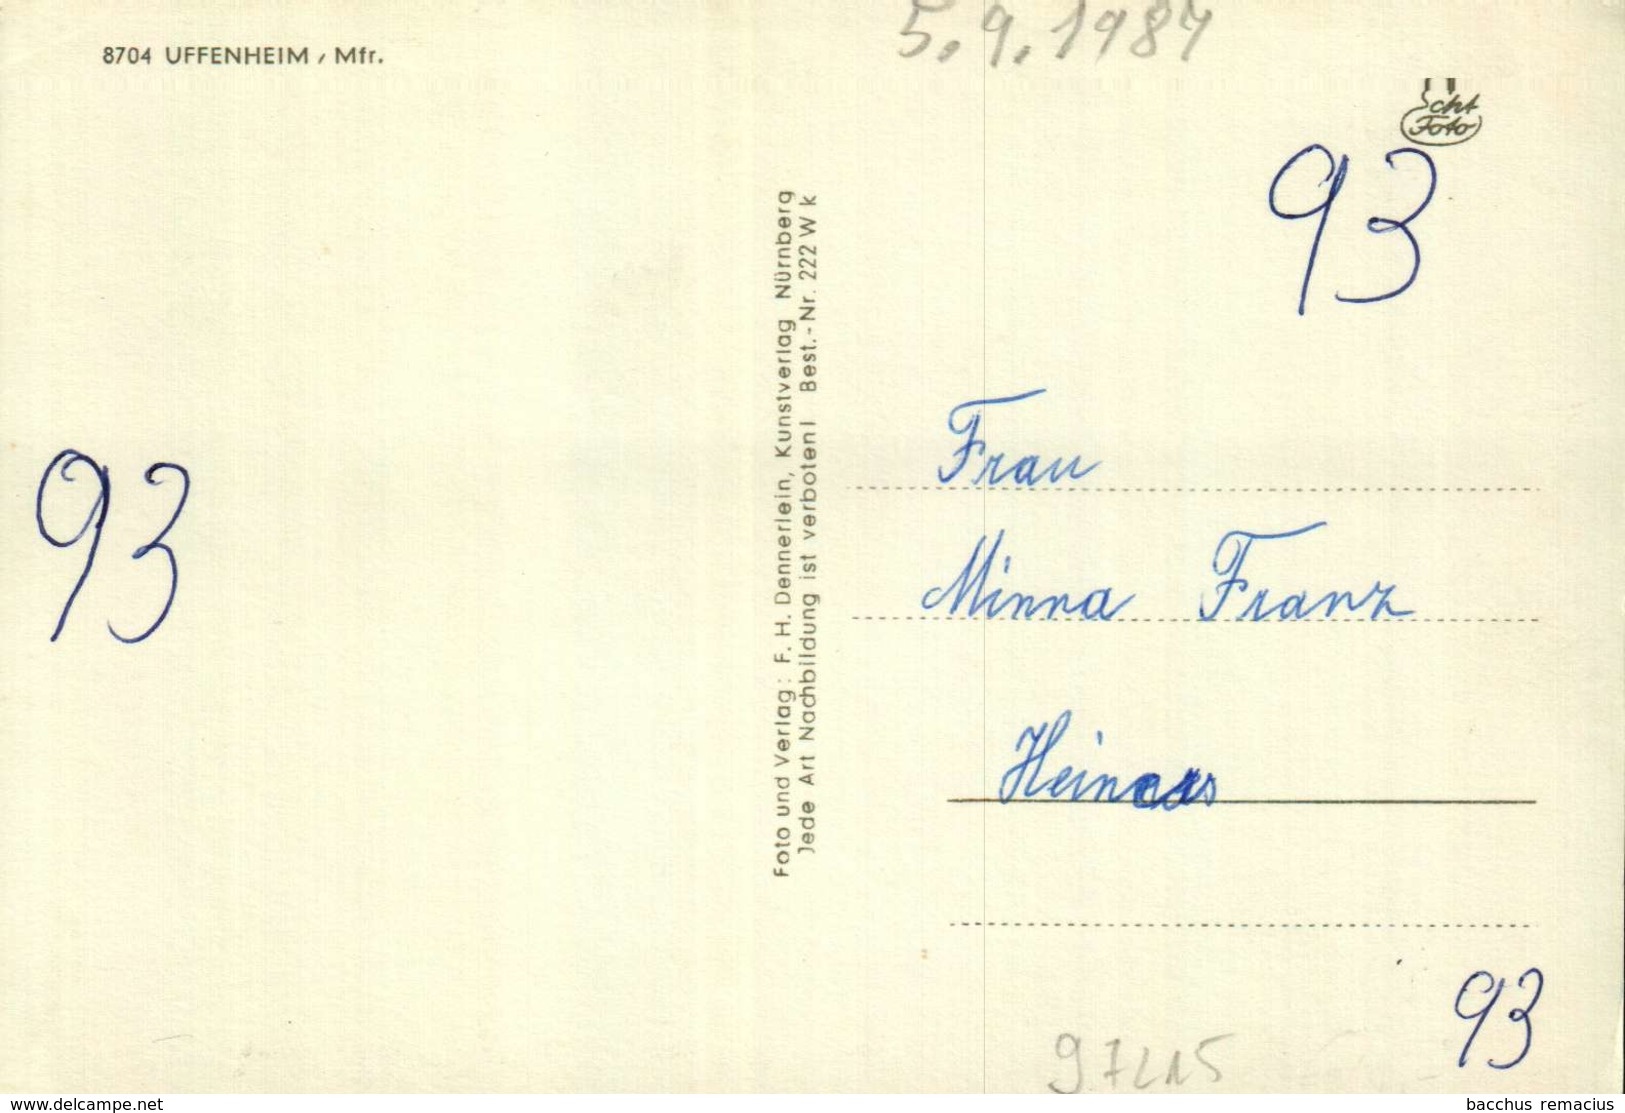 8704 UFFENHEIM / Mfr.
5.9.1987
Echt
Foto
93
93
Foto und Verlag: F. H. Dennerlein, Kunstverlag Nürnberg
Jede Art Nachbildung ist verboten! Best.-Nr. 222 W k
Frau
Minna Franz
93
97215
www.delcampe.net
bacchus remacius